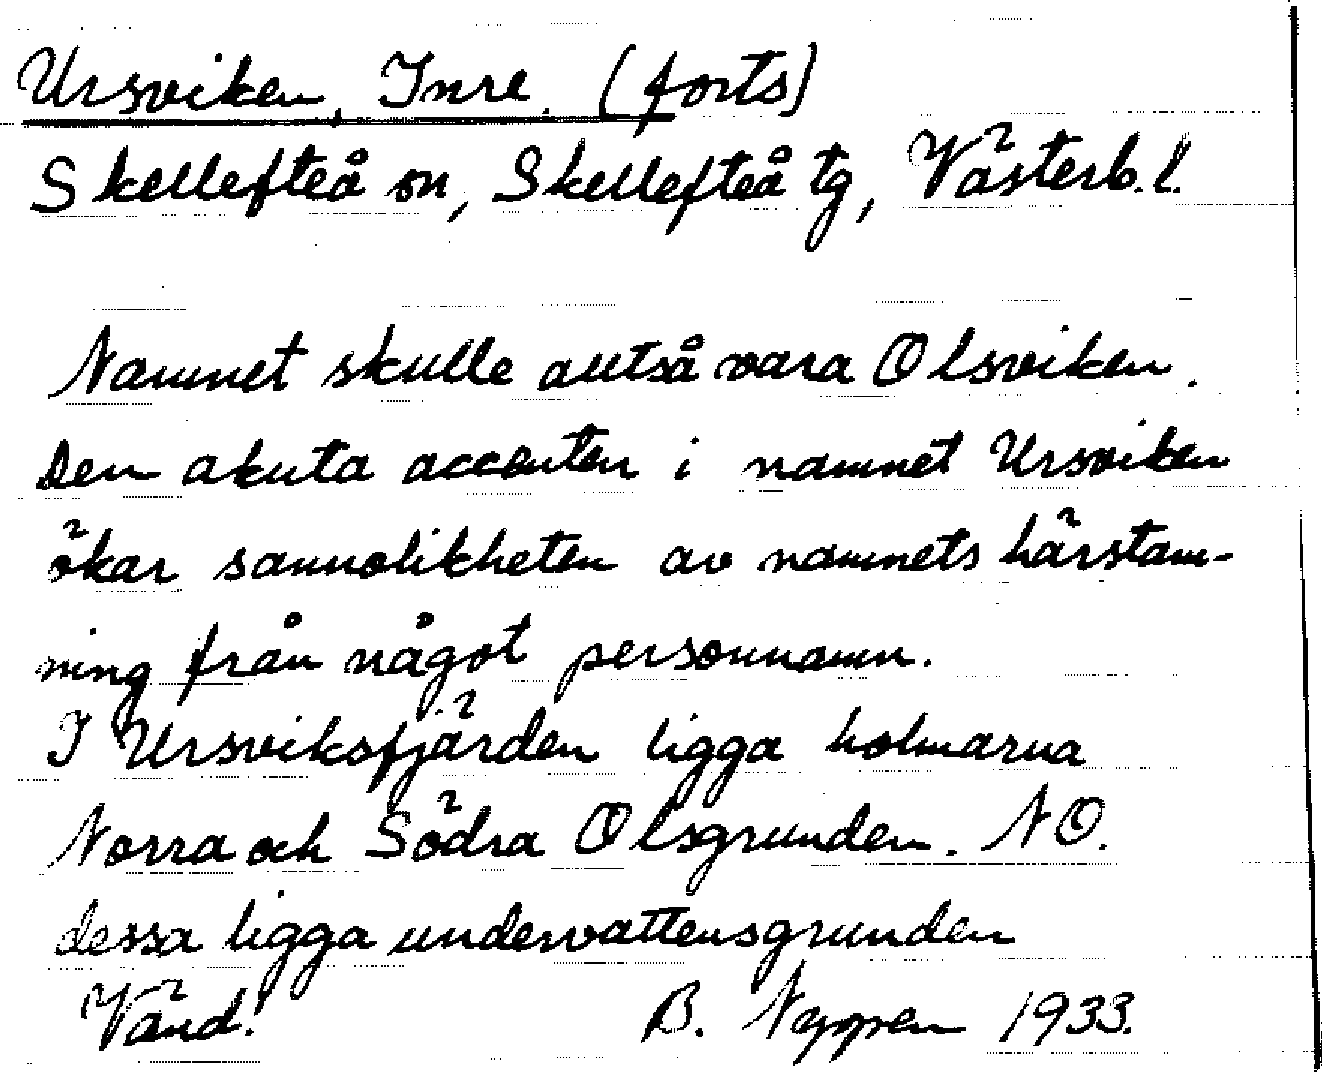 Ursviken, Inre. (forts)
Skellefteå sn, Skellefteå tg, Västerb. l.
Namnet skulle alltså vara Olsviken.
Den akuta accenten i namnet Ursviken
ökar sannolikheten av namnets härstam-
ning från något personnamn.
I Ursviksfjärden ligga holmarna
Norra och Södra Olsgrunden. NO.
dessa ligga undervattensgrunden
Vänd! B. 1933.